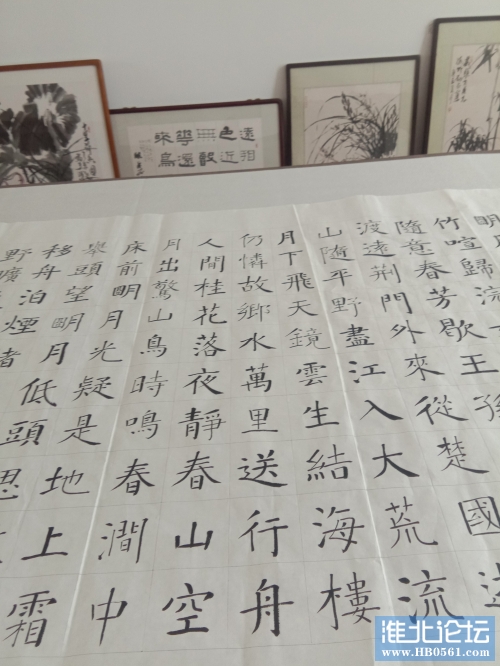 明
竹喧歸浣
隨意春芳歇王孫
渡遠荊門外來從楚國遊
山隨平野盡江入大荒流
月下飛天鏡雲生結海樓
仍憐故鄉水萬里送行舟
人間桂花落夜靜春山空
月出驚山鳥時鳴春澗中
床前明月光疑是地上霜
舉頭望明月低頭思
移舟泊煙渚
野曠
遠
色近
無聲
華還
來鳥
淮北论坛
www.HB0561.com